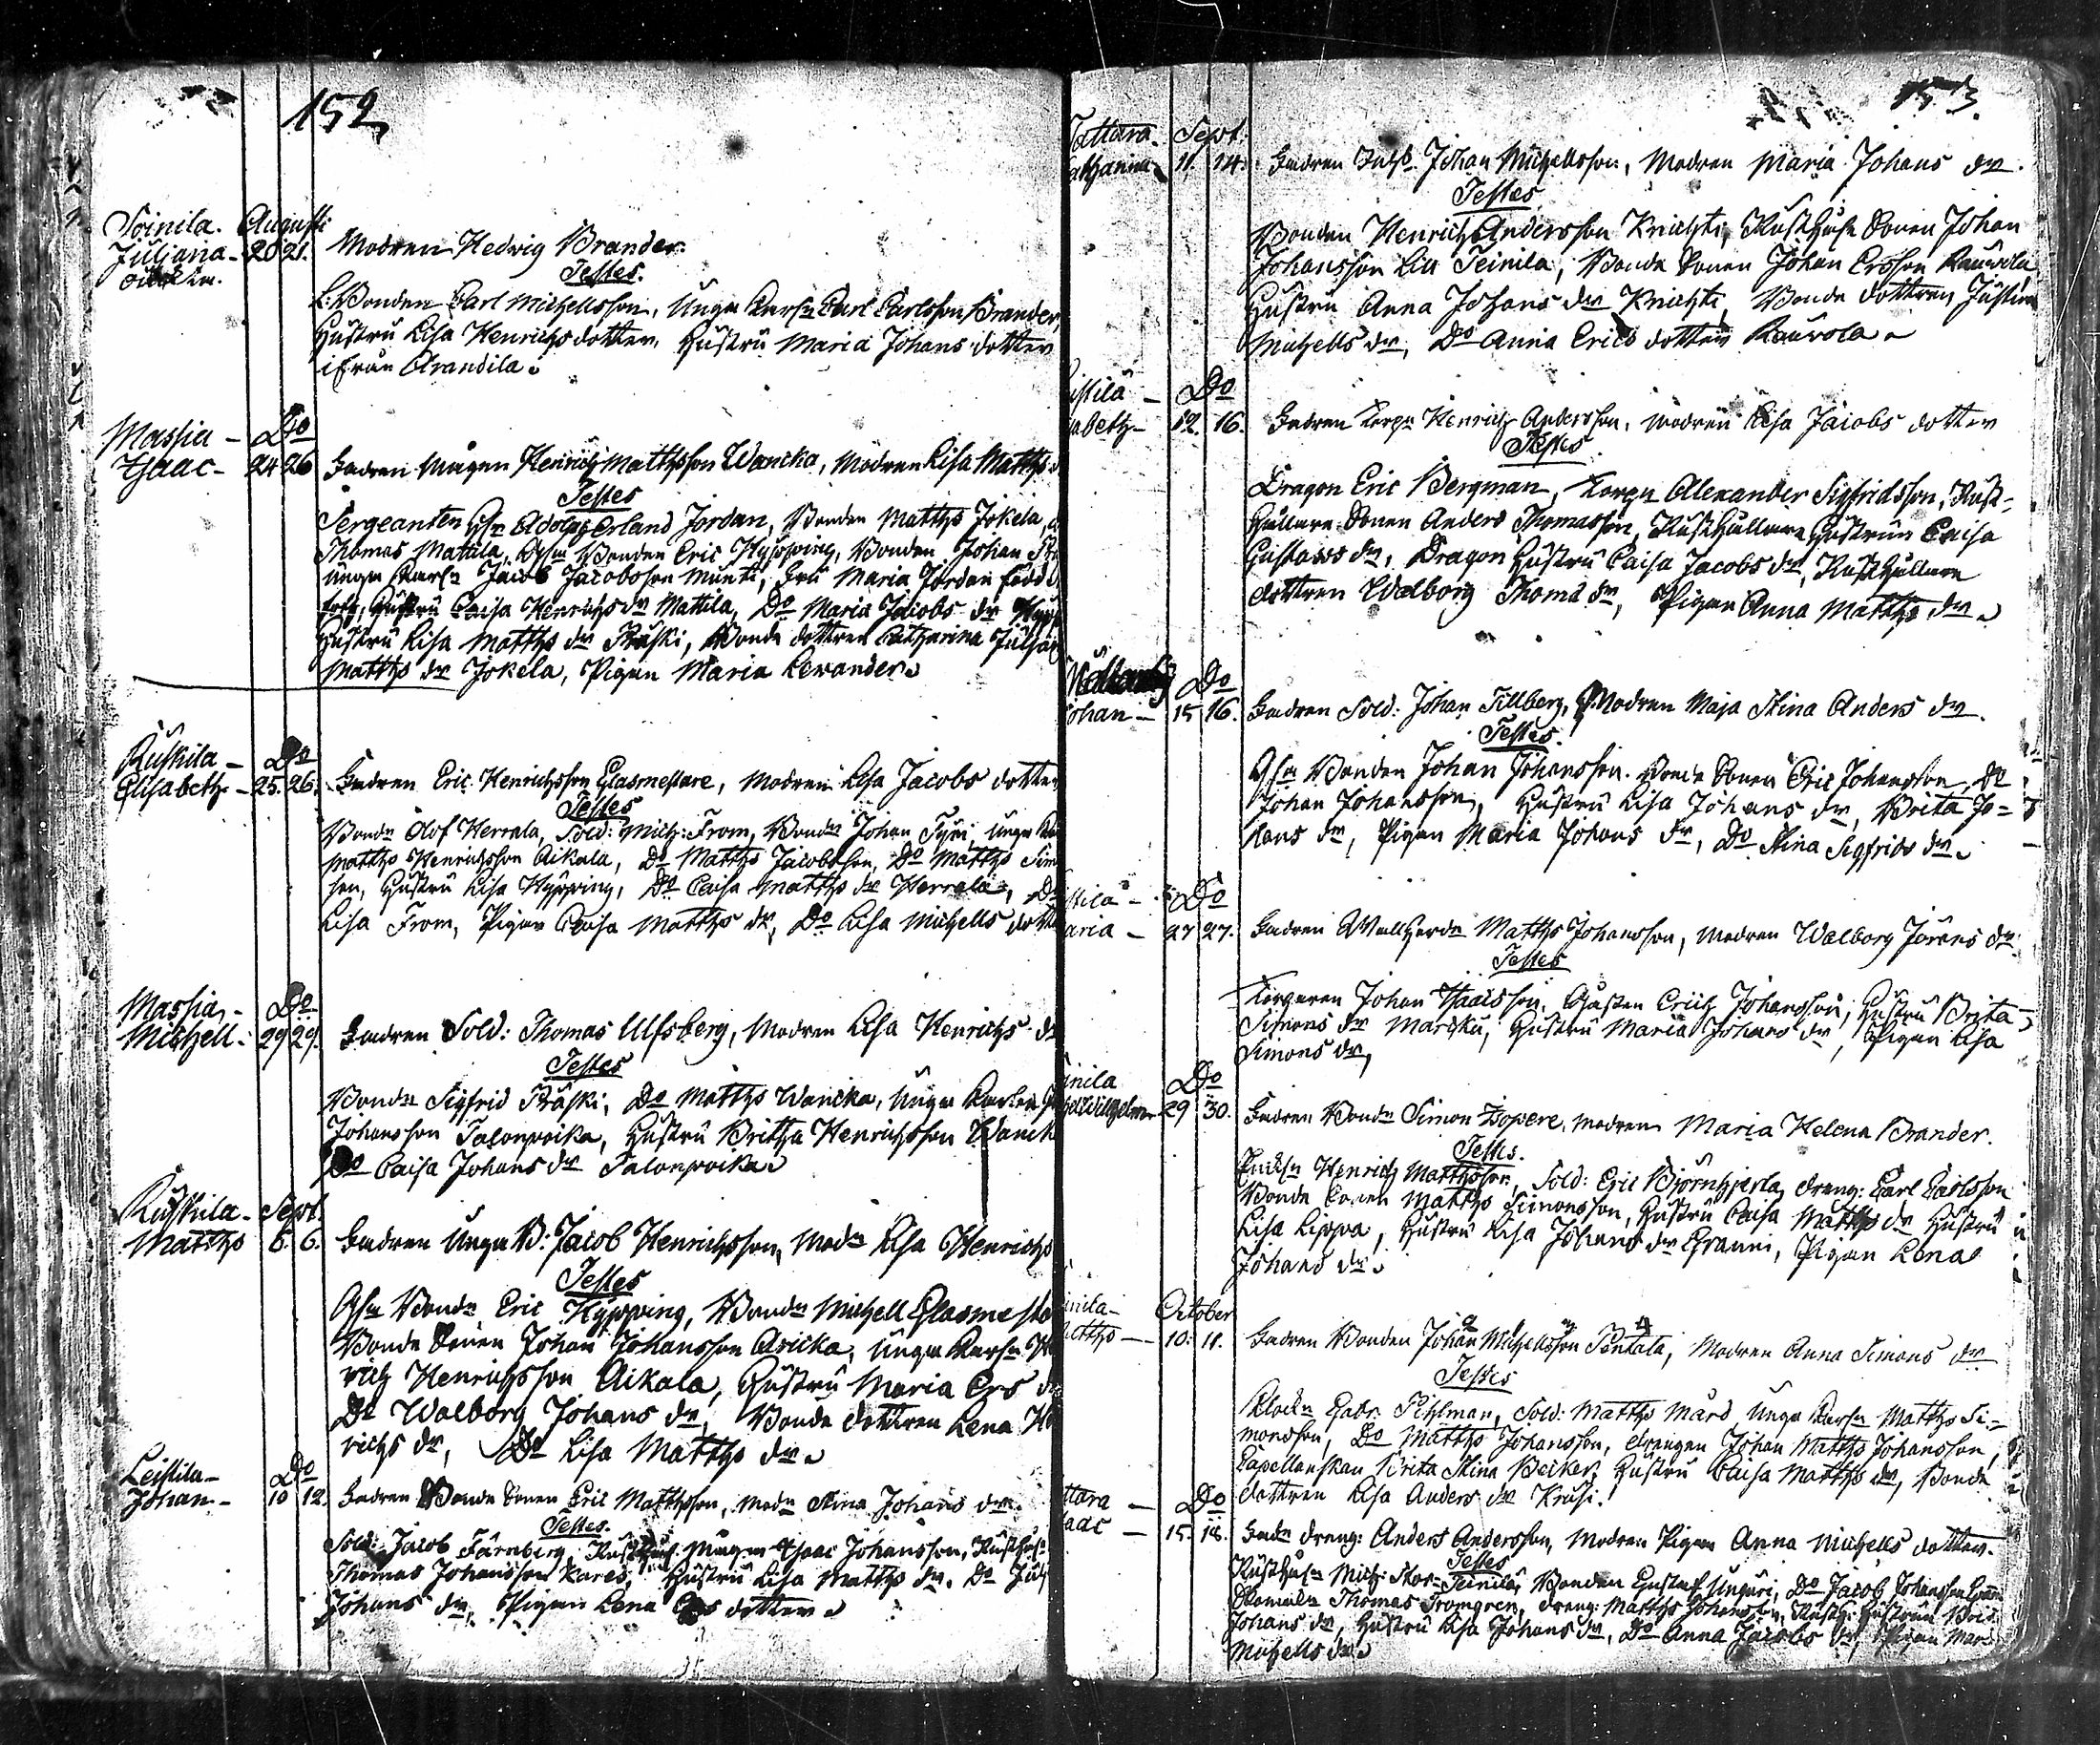 152
Soinila. Augusti
Juliana - 20 21. Modren Hedwig Brander.
oäckta.
Testes.
L: Bonden Carl Michellsson, Unga Karln Carl Carlsson Brander,
Hustru Lisa Henrichsdotter, Hustru Maria Johans dotter
ifrån Arandila.
Massia - Do
Isaac - 24 26 Fadren Mågen Henrich Matthsson Wancka, Modren Lisa Matths
Testes
Sergeanten Adolph Erland Jordan, Bonden Matths Jokela,
Thomas Mattila, Bonden Eric Hypping, Bonden Johan
unga Karln Jacob Jacobsson Munti, Fru Maria Jordan född
Hustru Caisa Henrichs dr Mattila, Do Maria Jacobs dr
Hustru Lisa Matths dr Präski, Bonde dottren Catharina
Matths dr Jokela, Pigan Maria Lewander.
Kuskila - Do
Elisabeth - 25. 26. Fadren Eric Henrichsson Glasmestare, Modren Lisa Jacobs dotter
Testes
Bondn Olof Herrala, Sold: Mich: From, Bondn Johan Tyri, unga
Matths Henrichsson Aikala, Do Matths Jacobsson, Do Matths Sim
son, Hustru Lisa Hypping, Do Caisa Matths dr Herrala, Do
Lisa From, Pigan Caisa Matths dr, Do Lisa Michells dott
Massia - Do
Michell - 29 29. Fadren Sold: Thomas Ulfsberg, Modren Lisa Henrichs dr
Testes
Bondn Sigfrid Präski, Do Matths Wancka, Unga Karlen
Johansson Talonpoika, Hustru Britha Henrichsson Wanck
Do Caisa Johans dr Talonpoika
Kuskila - Sept.
Matths 6. 6. Fadren Unga B: Jacob Henrichsson, Modn Lisa Henrichs
Testes
Bondn Eric Hypping, Bondn Michell Glasmesta
Bonde Sonen Johan Johansson Aricka, Unga Karln
rich Henrichsson Aikala, Hustru Maria Ers
Do Walborg Johans dr, Bonde dottren Lena
richs dr, Do Lisa Matths dr.
Leistila - Do
Johan - 10 12. Fadren Bonde Sonen Eric Matthsson, Modn Stina Johans dr.
Testes.
Sold: Jacob Färnberg, Rusthus Mågen Isaac Johansson,
Thomas Johansson Kares, Hustru Lisa Matths dr. Do
Johans dr, Pigan Lena dotter.
153
Tattara. Sept.
athanna 11. 14. Fadren Johan Michellsson, Modren Maria Johans dr.
Testes
Bonden Henrich Andersson Knichti, Rusth Sonen Johan
Johansson Teinila, Bonde Sonen Johan Ersson Rauvola
Hustru Anna Johans dr Knichti, Bonde dottren Justina
Michells dr, Do Anna Erics dotter Rauvola.
istila - Do
abeth - 12. 16. Fadren Torpn Henrich Andersson, Modren Lisa Jacobs dotter
Testes
Dragon Eric Bergman, Torpn Alexander Sigfridsson, Rust-
hållare Sonen Anders Thomasson, Rusthållare Hustrun Caisa
Gustavs dr, Dragon Hustru Caisa Jacobs dr, Rusthållare
dottren Walborg Thoms dr, Pigan Anna Matths dr.
Do
Johan - 15 16. Fadren Sold: Johan Tillberg, Modren Maja Stina Anders dr.
Testes.
Bonden Johan Johansson. Bonde Sonen Eric Johansson, Do
Johan Johansson, Hustru Lisa Johans dr, Brita Jo=
hans dr, Pigan Maria Johans dr, Do Stina Sigfrids dr.
stila - Do
aria - 27 27. Fadren Matths Johansson, Modren Walborg Jörans dr
Testes
Torparen Johan Isaacsson, Johansson, Hustru Brita
Simons dr Marcku, Hustru Maria Johans dr, Pigan Lisa
Simons dr,
inila Do
Wilhelm 29 30. Fadren Bondn Simon, Modren Maria Helena Brander.
Testes.
Henrich Matthsson, Sold: Eric Björnhjerta, dreng: Carl Carlsson
Bonde Sonen Matths Simonsson, Hustru Caisa Matths dr Hustru
Lisa Lippa, Hustru Lisa Johans dr, Pigan Lena
Johans dr.
inila - October
atths - 10. 11. Fadren Bonden Johan Michellsson Pentala, Modren Anna Simons dr
Testes
Klockn Gabr. Pihlman, Sold: Matths Mård, Unga Karln Matths Si=
monsson, Do Matths Johansson, drengen Johan Matths Johansson,
Capellanskan Brita Stina Becker, Hustru Caisa Matths dr, Bonde
dottren Lisa Anders dr Krusi.
ttara - Do
aac - 15. 18. Fadn dreng: Anders Andersson, Modren Pigan Anna Michells dotter.
Testes
Rusthn Mich: Teinilä, Bonden Gustaf Unguri, Do Jacob Johansson
Thomas Tromgren, dreng: Matths Johansson, Hustrun
Johans dr, Hustru Lisa Johans dr, Do Anna Jacobs dr, Pigan Mar
Michells dr.